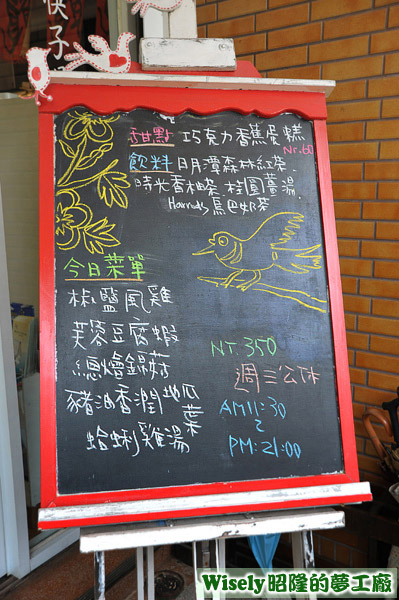 筷子
甜點 巧克力香蕉蛋糕
Nt.60
飲料 日月潭森林紅茶.
時光香柚茶. 桂圓薑湯.
Harrods烏巴奶茶
今日菜單
椒鹽風雞
芙蓉豆腐蝦
總燴錦菇
豬油香潤地瓜葉
蛤蜊雞湯
NT.350
週三公休
AM11:30
~
PM:21:00
Wisely 昭隆的夢工廠